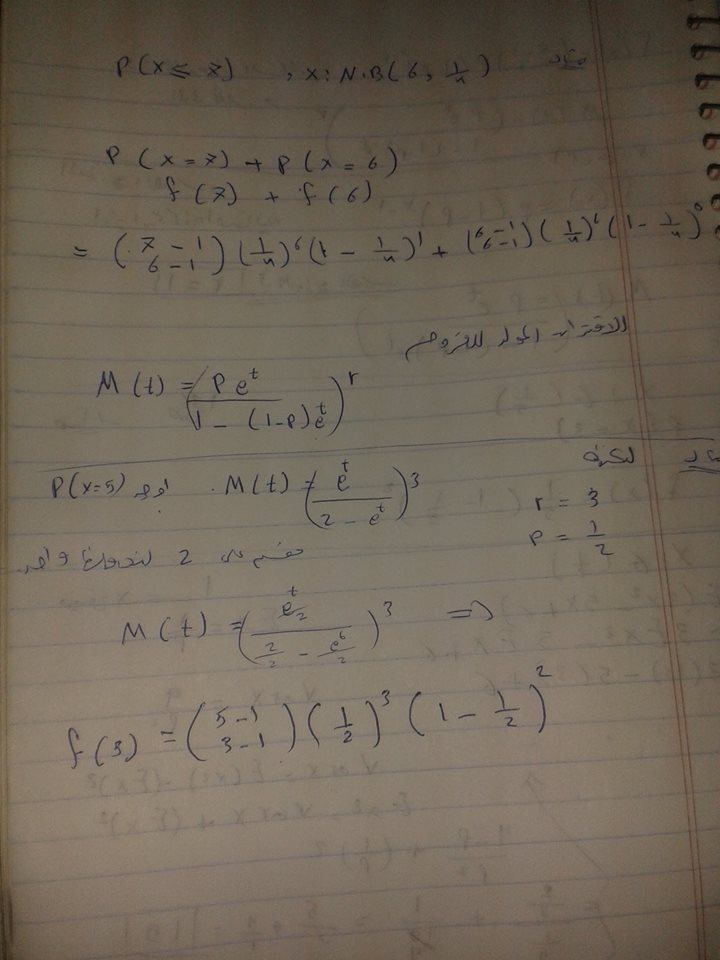 مثال P(X ≤ 7) , X: N.B(6, 1/4)
P(X=7) + P(X=6)
f(7) + f(6)
= (7-1 6-1) (1/4)^6 (1 - 1/4)^1 + (6-1 6-1) (1/4)^6 (1 - 1/4)^0
الاقتران المولد للعزوم
M(t) = (P e^t / 1 - (1-P)e^t)^r
مثال ليكن M(t) = (e^t / 2 - e^t)^3 أوجد P(X=5)
r = 3
P = 1/2
نقسم على 2
M(t) = (e^t/2 / 2/2 - e^t/2)^3 <=
f(3) = (5-1 3-1) (1/2)^3 (1 - 1/2)^2